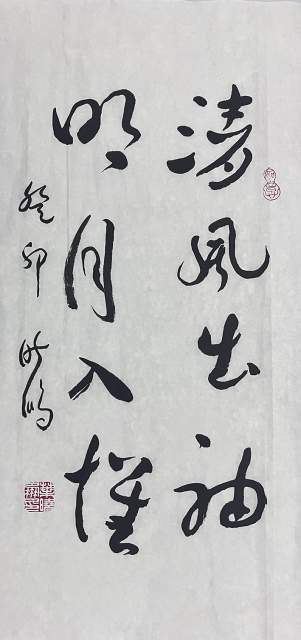 清風出袖
明月入懷
癸卯